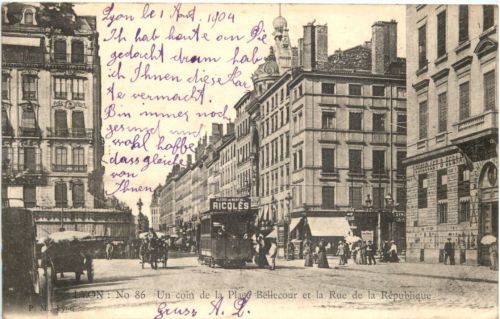 Lyon le 1 Aout. 1904
Ich hab heute an Sie
gedacht drum hab
ich Ihnen diese Kar
te vermacht.
Bin immer noch
gesund und
wohl hoffe
dass gleiche
von
Ihnen
RICQLÈS
LYON : No 86 Un coin de la Place Bellecour et la Rue de la République
Gruss A. D.